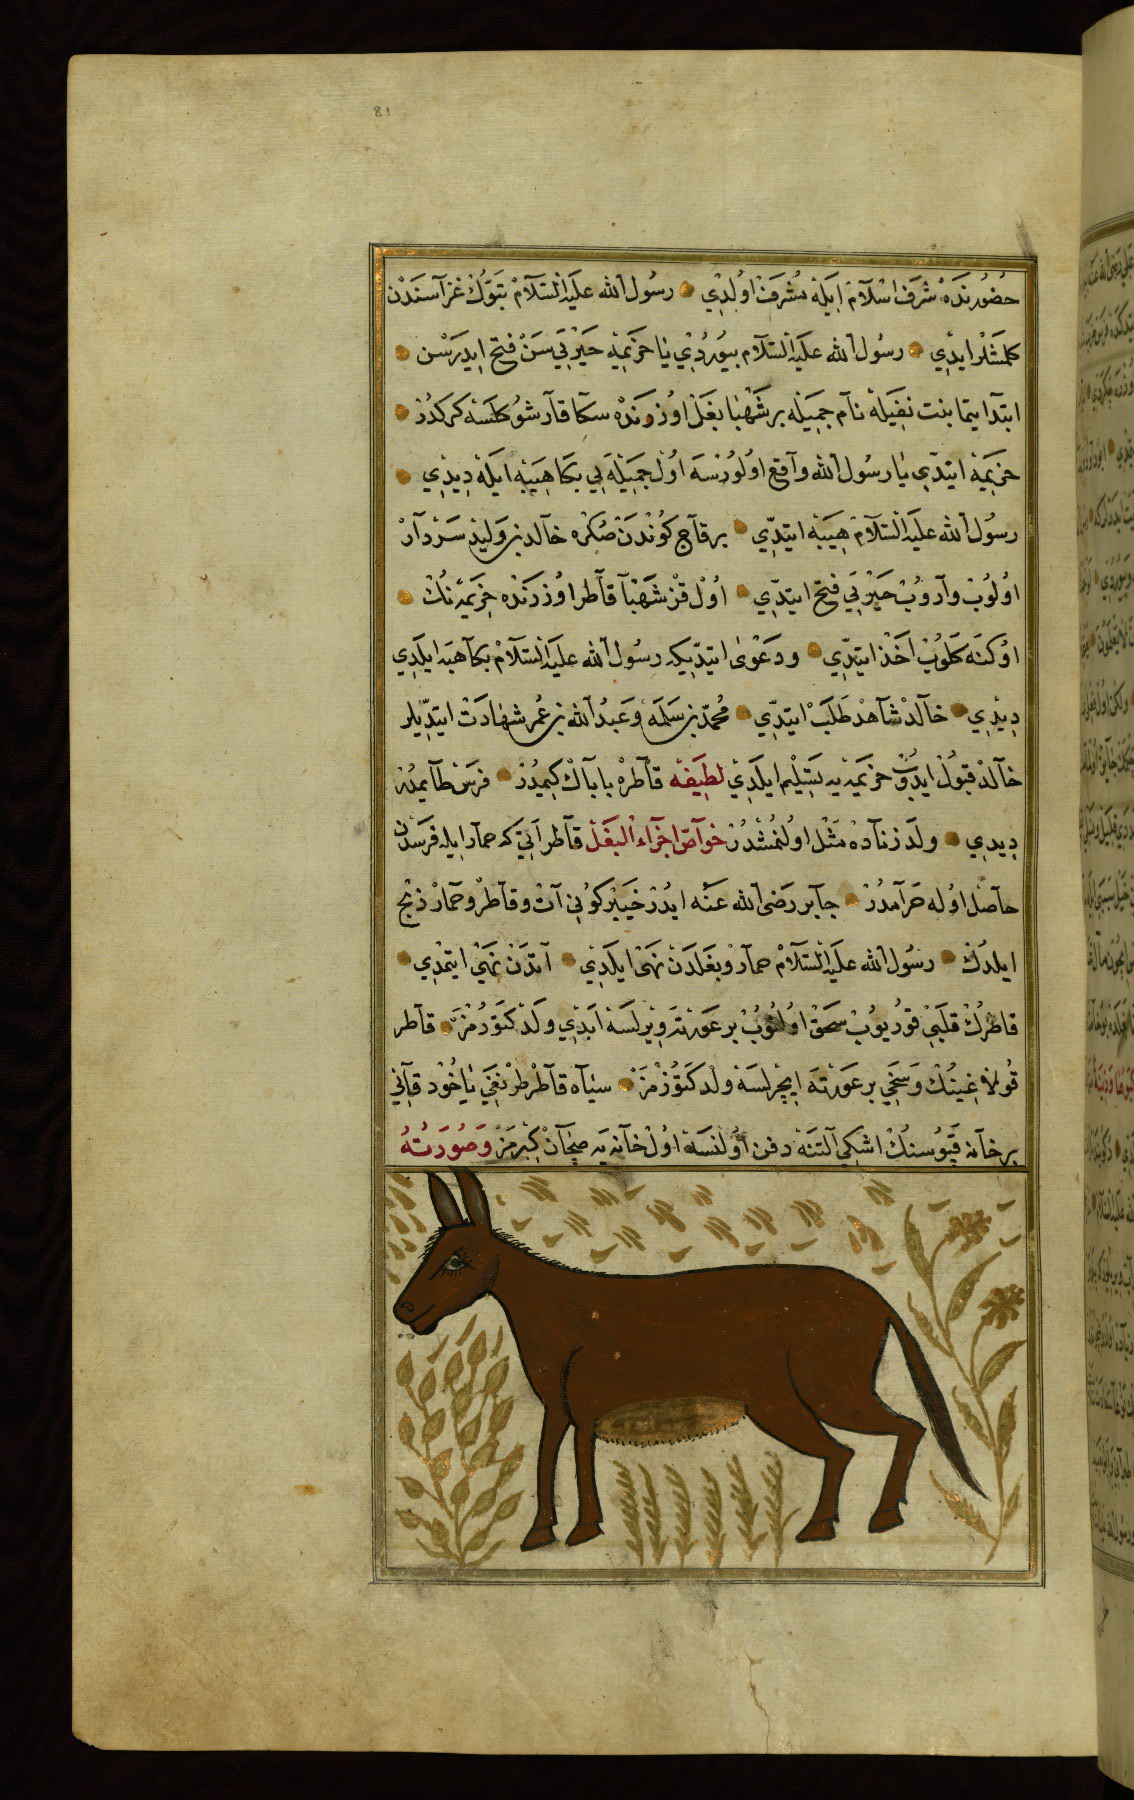 81
حضورنده شرف اسلام ايله مشرف اولدي رسول الله عليه السلام تبوك غزآسندن
كلمشلر ايدي رسول الله عليه السلام بيوردي يا خزيمه حيرني سن فتح ايدرسن
ابتدا يتما بنت نفيله نام جميله بر شهبا بغل اوزونده سكا قارشو كلسه كركدر
خزيمه ايتدي يا رسول الله واقع اولورسه اول جميله يي بكا هبيه ايله ديدي
رسول الله عليه السلام هيبه ايتدي بر قاج كوندن صكره خالد بن وليد سردار
اولوب واروب حيرني فتح ايتدي اول قز شهبا قاطر اوزرنده خزيمه نك
اوكنه كلوب اخذ ايتدي ودعوى ايتديكه رسول الله عليه السلام بكا هبه ايلدي
ديدي خالد شاهد طلب ايتدي محمد بن سلمه وعبد الله بن عمر شهادت ايتديلر
خالد قبول ايدوب خزيمه يه تسليم ايلدي لطيفه قاطره باباك كيمدر فرس طايمدر
ديدي ولد زناده مثل اولنمشدر خواص اجزاء البغل قاطر اتي كه حمار ايله فرسدن
حاصل اوله حرامدر جابر رضى الله عنه ايدر خيبر كوني ات وقاطر وحمار ذبح
ايلدك رسول الله عليه السلام حمار وبغلدن نهى ايلدي اتدن نهي ايتمدي
قاطرك قلبي قوريوب سحق اولنوب بر عورته ويرلسه ابدي ولد كتورمز قاطر
قولاغينك وسخي بر عورته ايچرلسه ولد كتورمز سياه قاطر طرنغي ياخود قاني
بر خانه قپوسنك اشكي التنه دفن اولنسه اول خانه يه صچان كيرمز وصورته